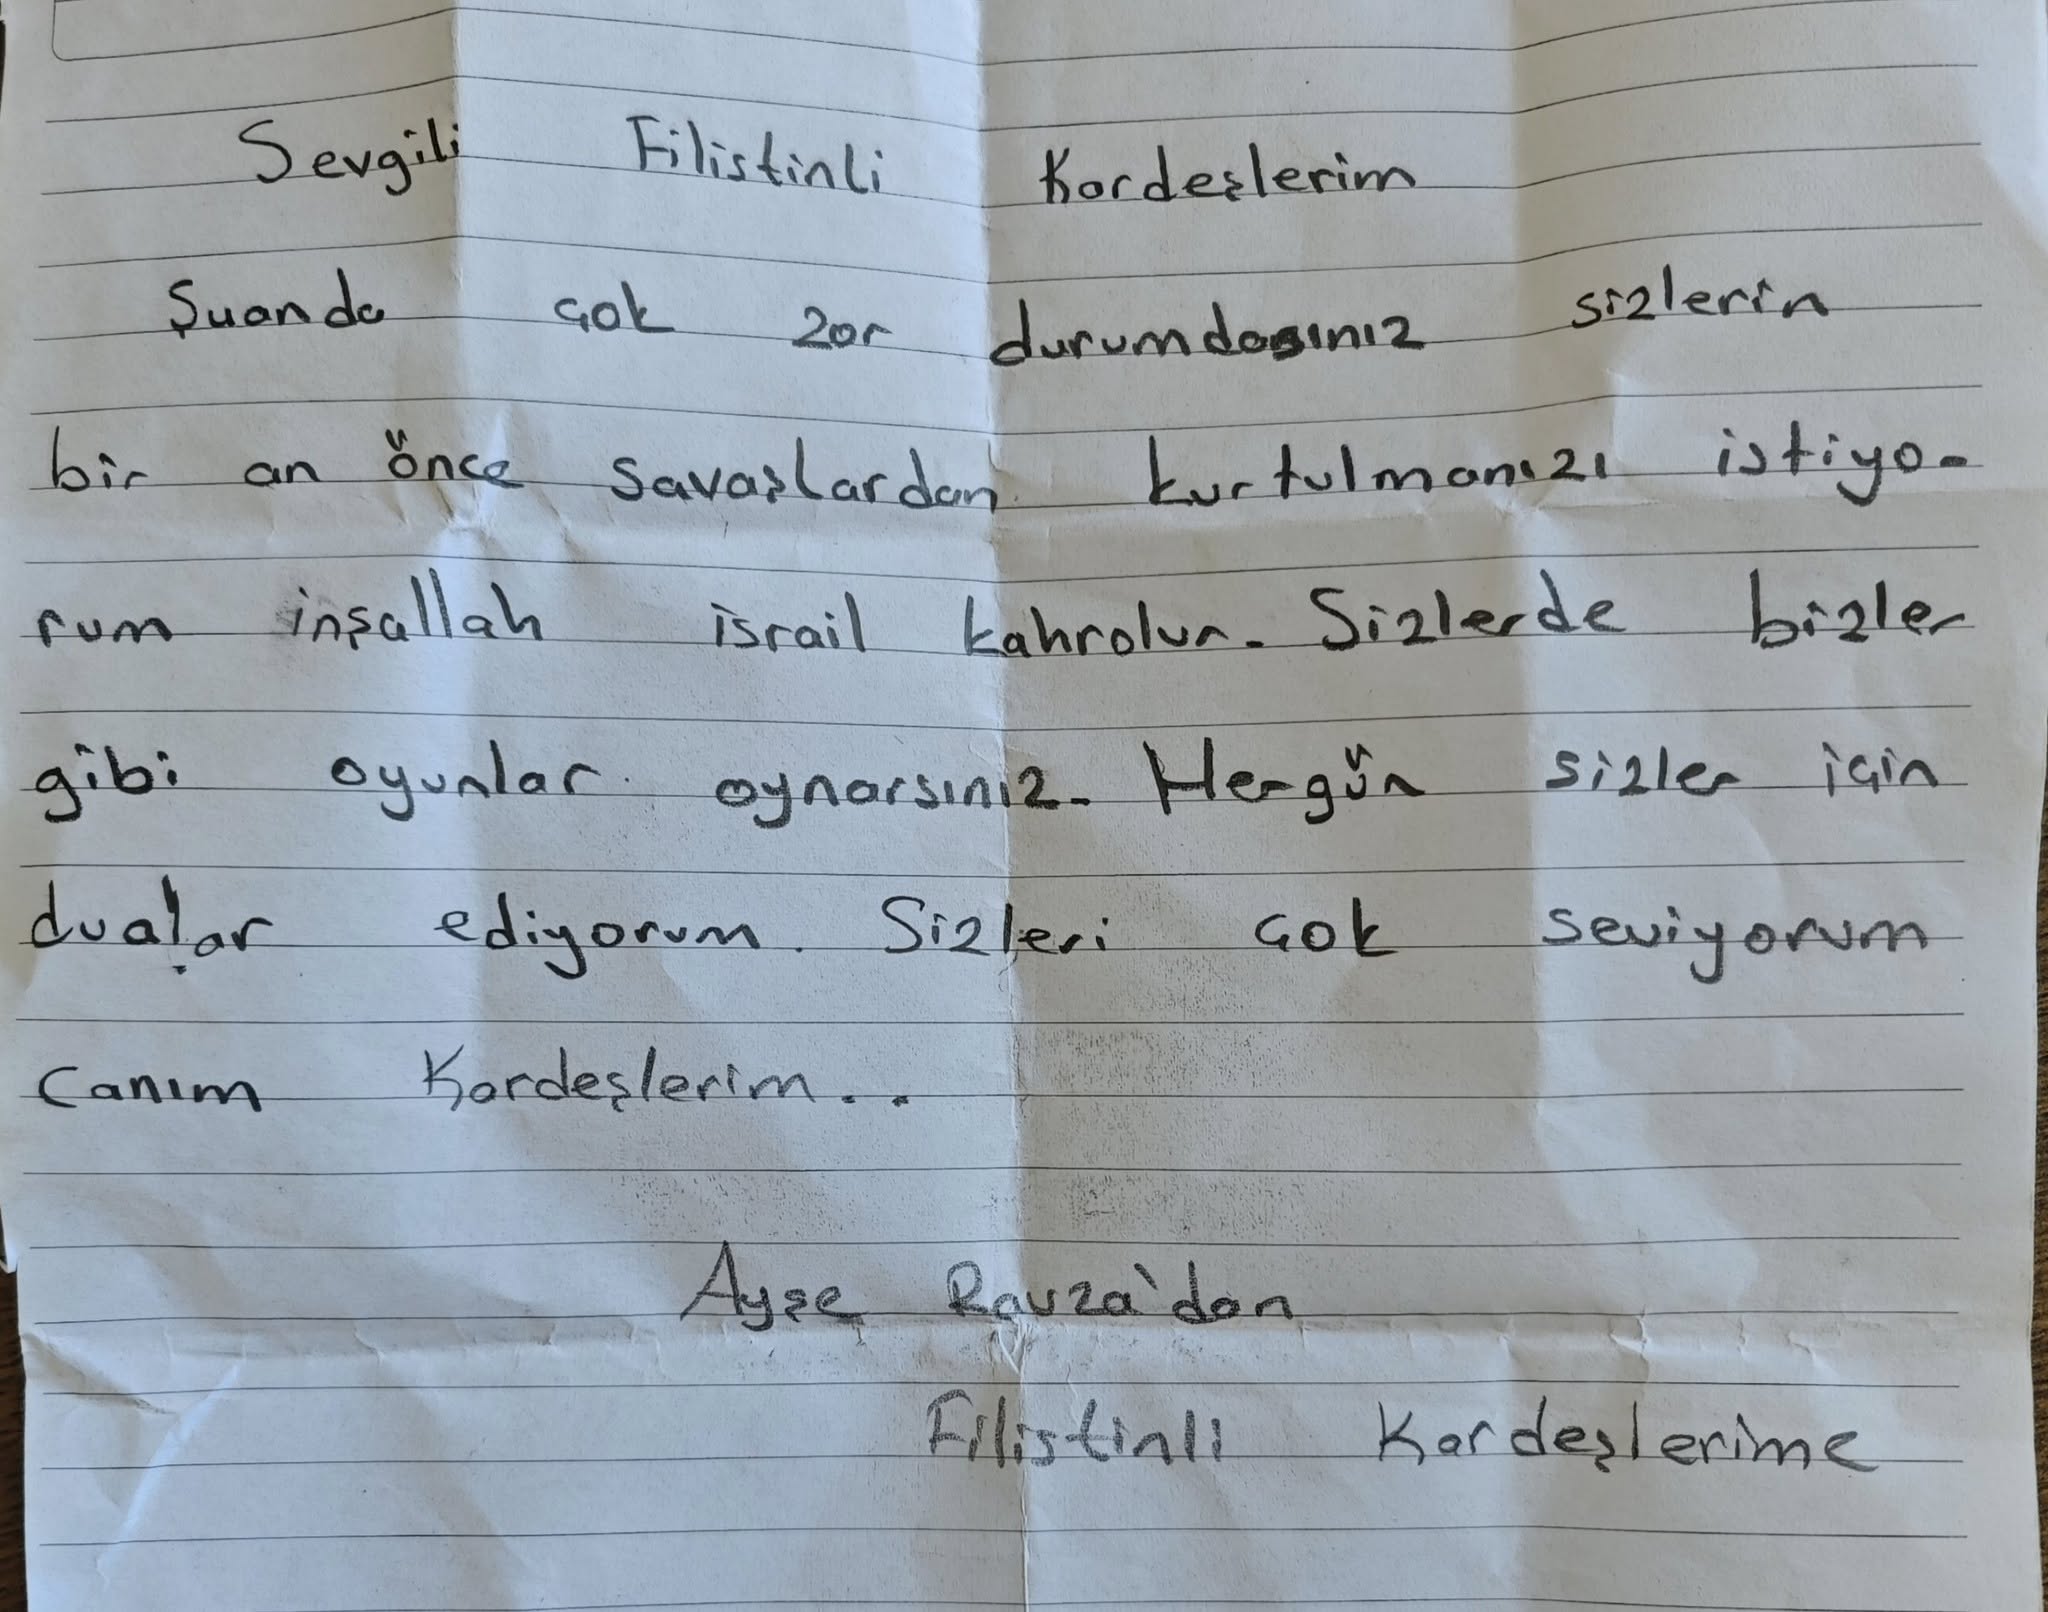 Sevgili Filistinli Kardeşlerim
Şuanda çok zor durumdasınız sizlerin
bir an önce savaşlardan kurtulmanızı istiyo-
rum inşallah israil kahrolur. Sizlerde bizler
gibi oyunlar oynarsınız. Hergün sizler için
dualar ediyorum. Sizleri çok seviyorum
Canım Kardeşlerim..
Ayşe Ravza'dan
Filistinli Kardeşlerime